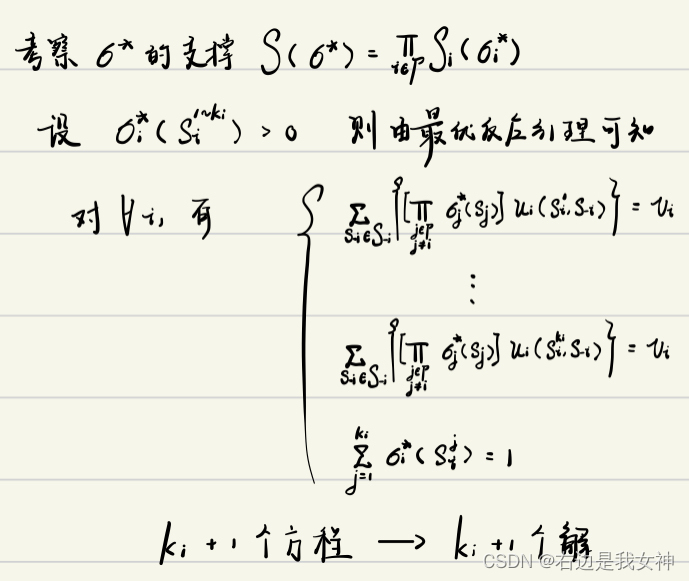 考察 σ* 的支撑 S(σ*) = ∏_{i∈P} S_i(σ_i*)
设 σ_i*(S_i^{1~k_i}) > 0 则由最优反应引理可知
对 ∀i, 有
∑_{S_{-i}∈S_{-i}} {[∏_{j∈P, j≠i} σ_j*(S_j)] u_i(S_i^1, S_{-i})} = v_i
⋮
∑_{S_{-i}∈S_{-i}} {[∏_{j∈P, j≠i} σ_j*(S_j)] u_i(S_i^{k_i}, S_{-i})} = v_i
∑_{j=1}^{k_i} σ_i*(S_i^j) = 1
k_i + 1 个方程 → k_i + 1 个解
CSDN @右边是我女神